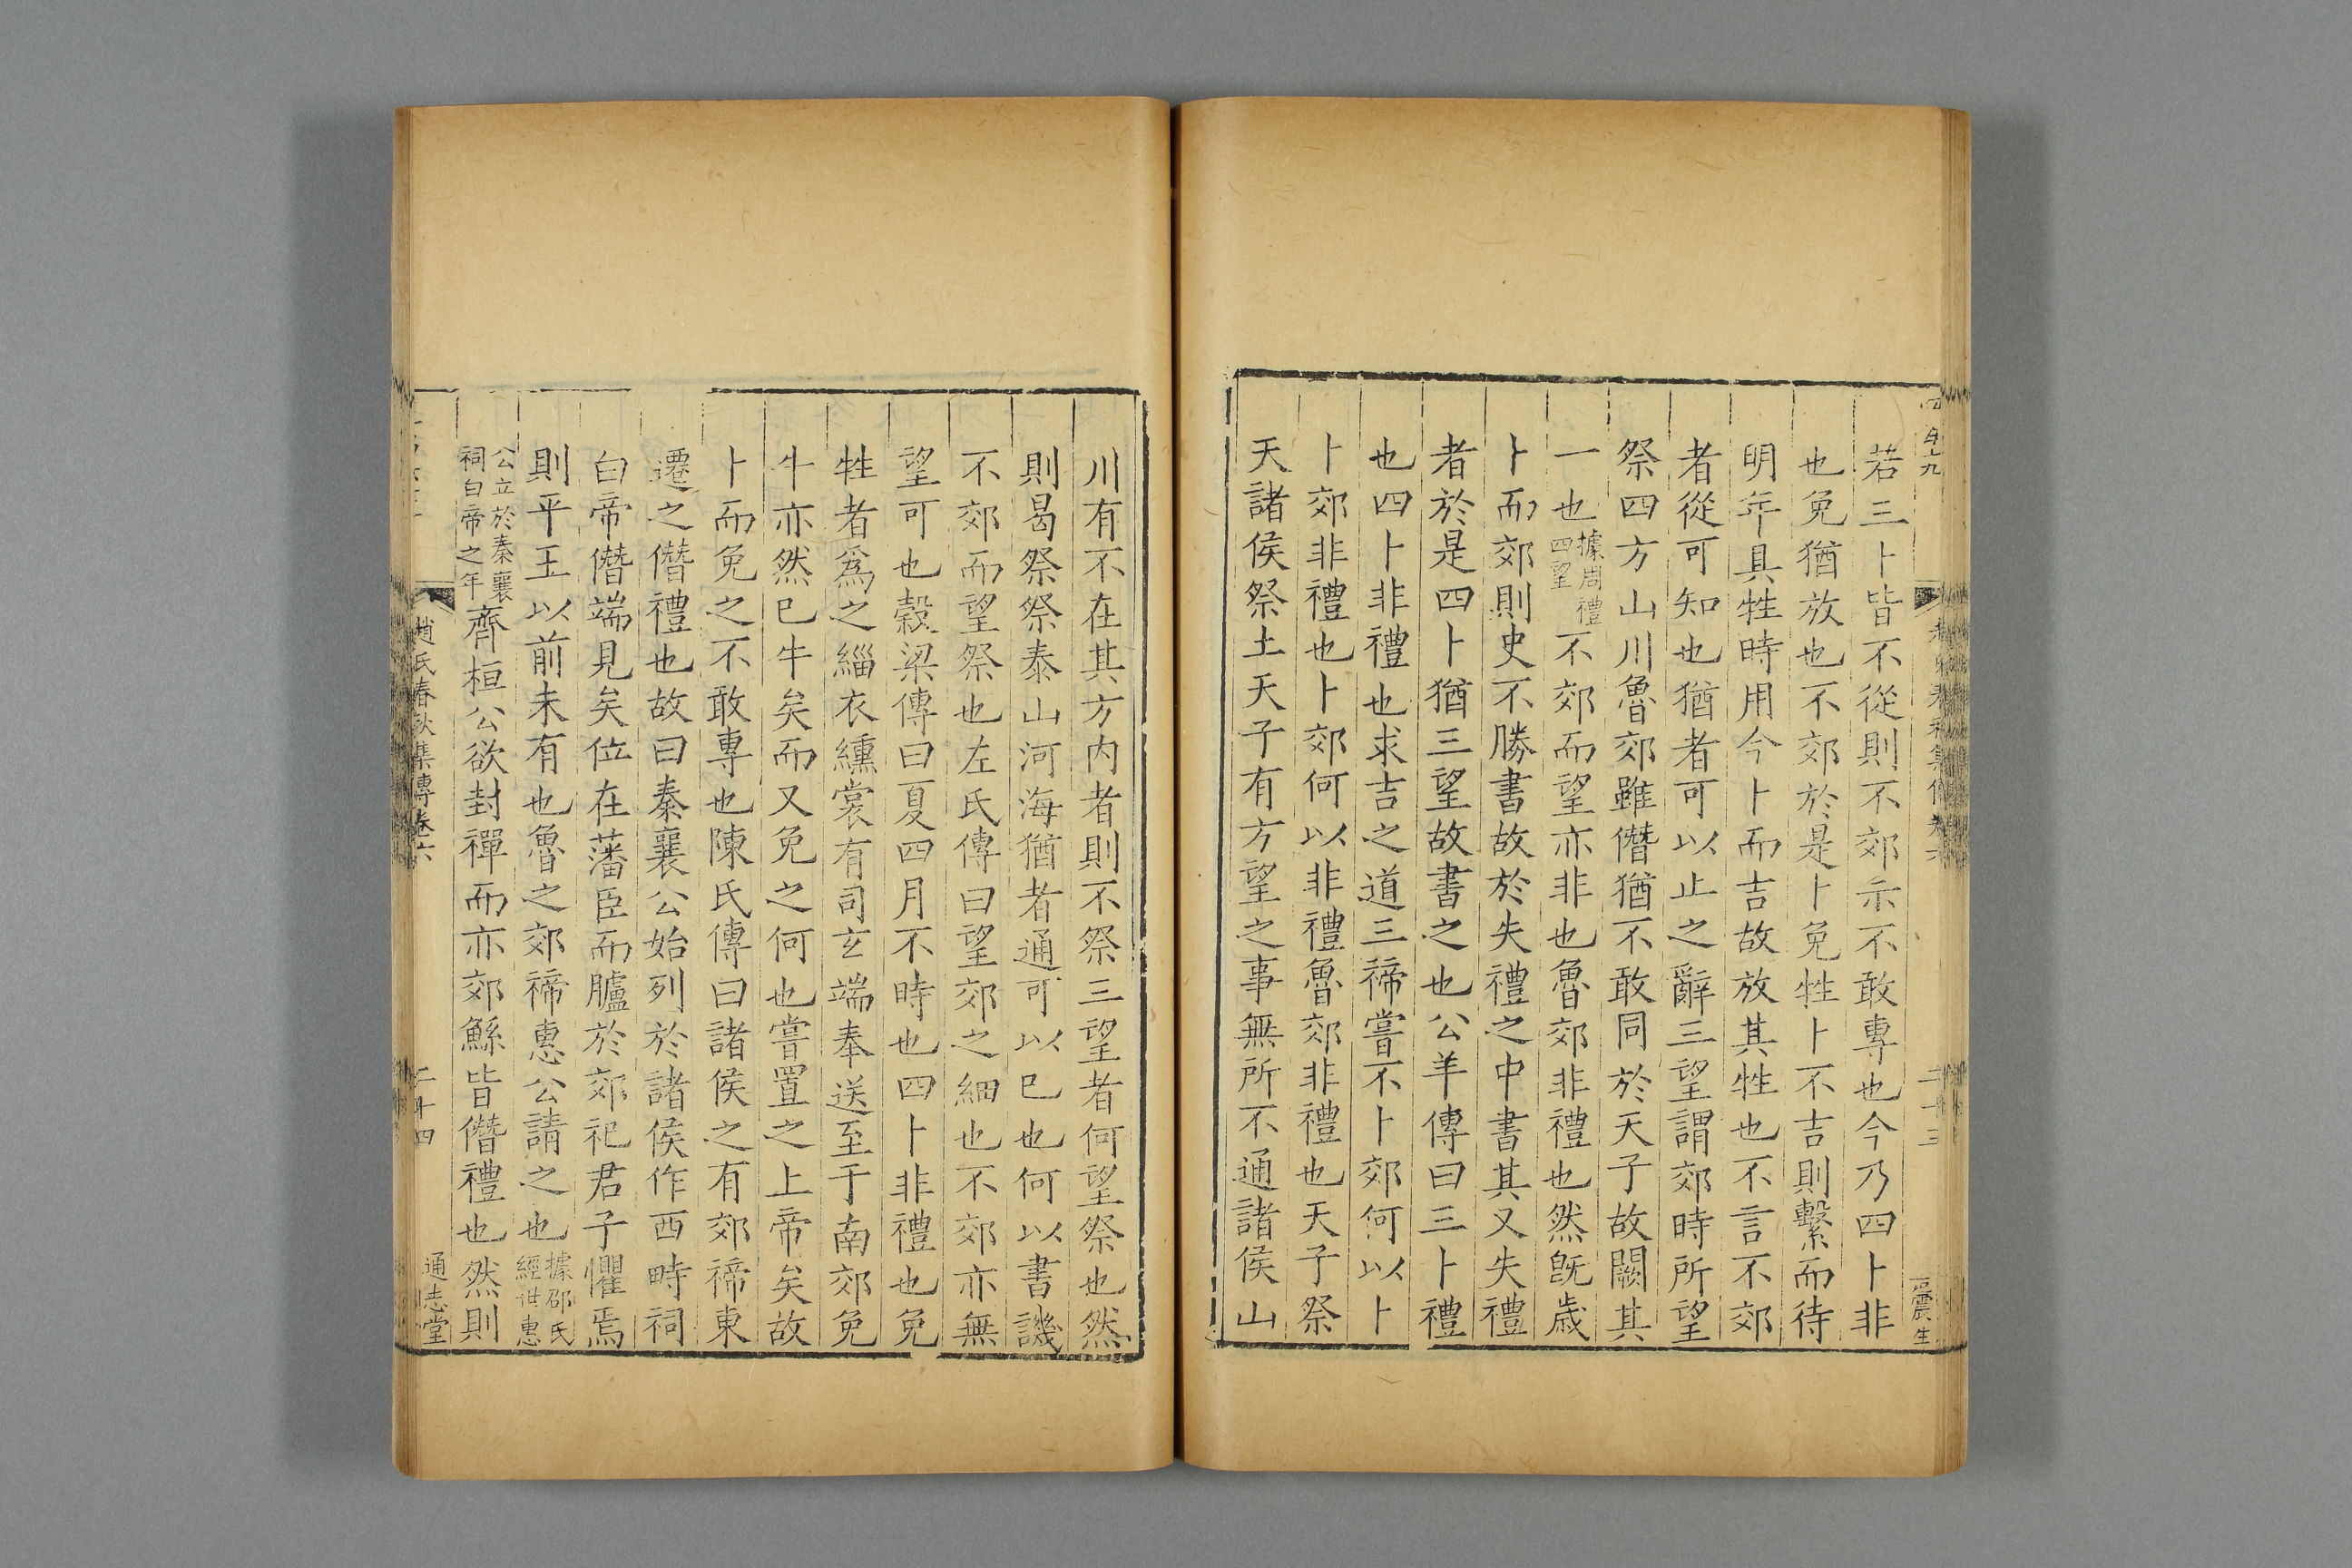 若三卜皆不從則不郊示不敢專也今乃四卜非
也免猶放也不郊於是卜免牲卜不吉則繫而待
明年具牲時用今卜而吉故放其牲也不言不郊
者從可知也猶者可以止之辭三望謂郊時所望
祭四方山川魯郊雖僭猶不敢同於天子故闕其
一也據周禮四望不郊而望亦非也魯郊非禮也然旣歲
卜而郊則史不勝書故於失禮之中書其又失禮
者於是四卜猶三望故書之也公羊傳曰三卜禮
也四卜非禮也求吉之道三禘嘗不卜郊何以卜
卜郊非禮也卜郊何以非禮魯郊非禮也天子祭
天諸侯祭土天子有方望之事無所不通諸侯山
川有不在其方内者則不祭三望者何望祭也然
則曷祭祭泰山河海猶者通可以已也何以書譏
不郊而望祭也左氏傳曰望郊之細也不郊亦無
望可也穀梁傳曰夏四月不時也四卜非禮也免
牲者爲之緇衣纁裳有司玄端奉送至于南郊免
牛亦然已牛矣而又免之何也嘗置之上帝矣故
卜而免之不敢專也陳氏傳曰諸侯之有郊禘東
遷之僭禮也故曰秦襄公始列於諸侯作西畤祠
白帝僭端見矣位在藩臣而臚於郊祀君子懼焉
則平王以前未有也魯之郊禘惠公請之也據邵氏經世惠
公立於秦襄祠白帝之年齊桓公欲封禪而亦郊鯀皆僭禮也然則
趙氏春秋集傳卷六
二十四
通志堂